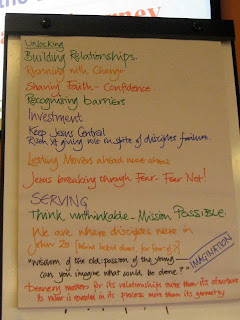 Unlocking
Building Relationships.
Running with Change
Sharing Faith - Confidence
Recognising barriers
Investment
Keep Jesus Central
Risen X giving role in spite of disciples failure.
Letting Movers ahead move ahead
Jesus breaking though Fear - Fear Not!
SERVING
Think unthinkable - Mission POSSIBLE.
We are where disciples were in
John 20 [being locked down, for fear of?]
"Wisdom of the old; passion of the young —
can you imagine what could be done?" - IMAGINATION
Deanery matters for its relationships more than its structure
is more in its process more than its geometry